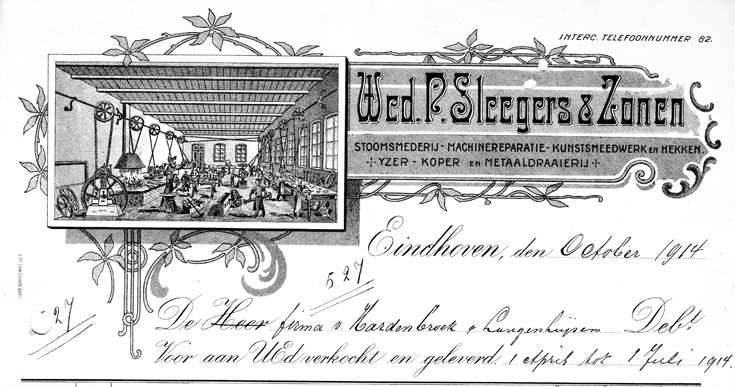 INTERC. TELEFOONNUMMER 82.
Wed. P. Sleegers & Zonen
STOOMSMEDERIJ - MACHINEREPARATIE - KUNSTSMEEDWERK EN HEKKEN.
YZER - KOPER EN METAALDRAAIERIJ
Eindhoven, den October 1914
527
27
De Heer firma v. Hardenbroek & Langenhuijsen Debt.
Voor aan UEd verkocht en geleverd. 1 april tot 1 Juli 1914.